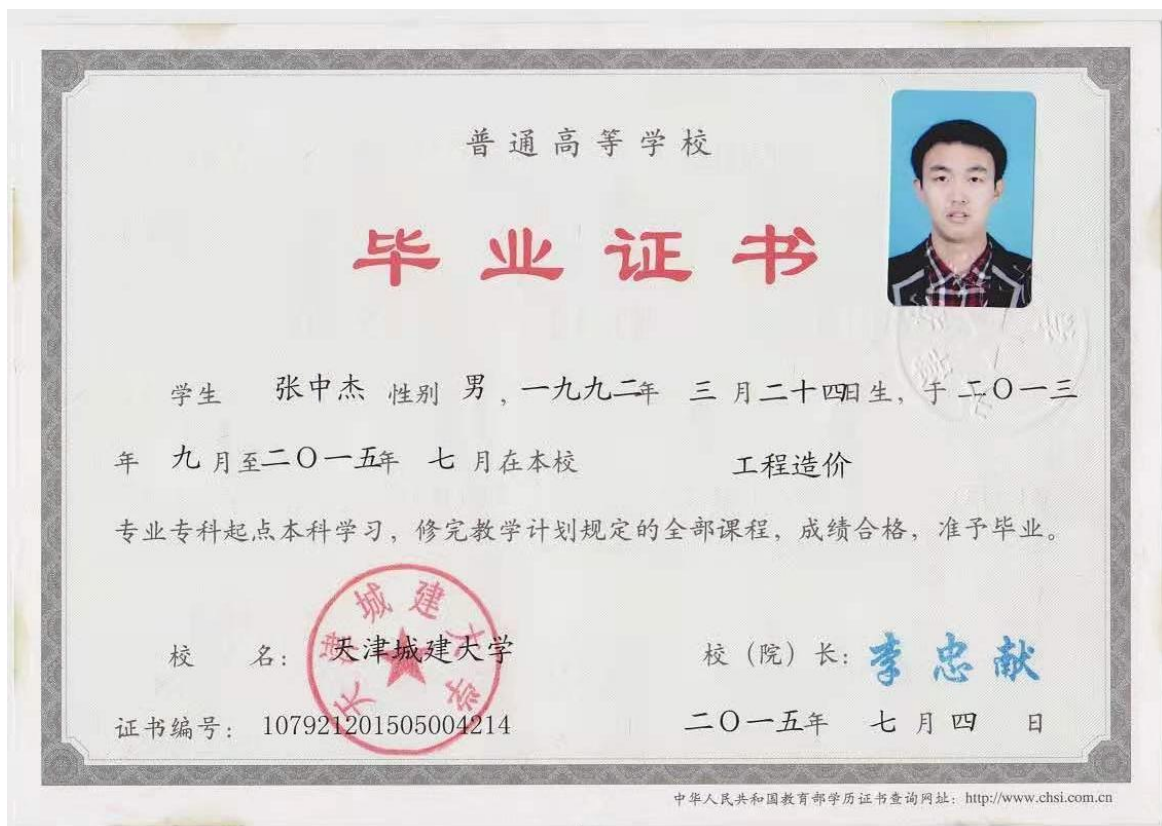 普通高等学校
毕业证书
学生 张中杰 性别 男，一九九二年 三月二十四日生，于二〇一三
年 九月至二〇一五年 七月在本校 工程造价
专业专科起点本科学习，修完教学计划规定的全部课程，成绩合格，准予毕业。
天津城建大学
校 名：天津城建大学 校（院）长：李忠献
证书编号：107921201505004214 二〇一五年 七月四 日
中华人民共和国教育部学历证书查询网址：http://www.chsi.com.cn